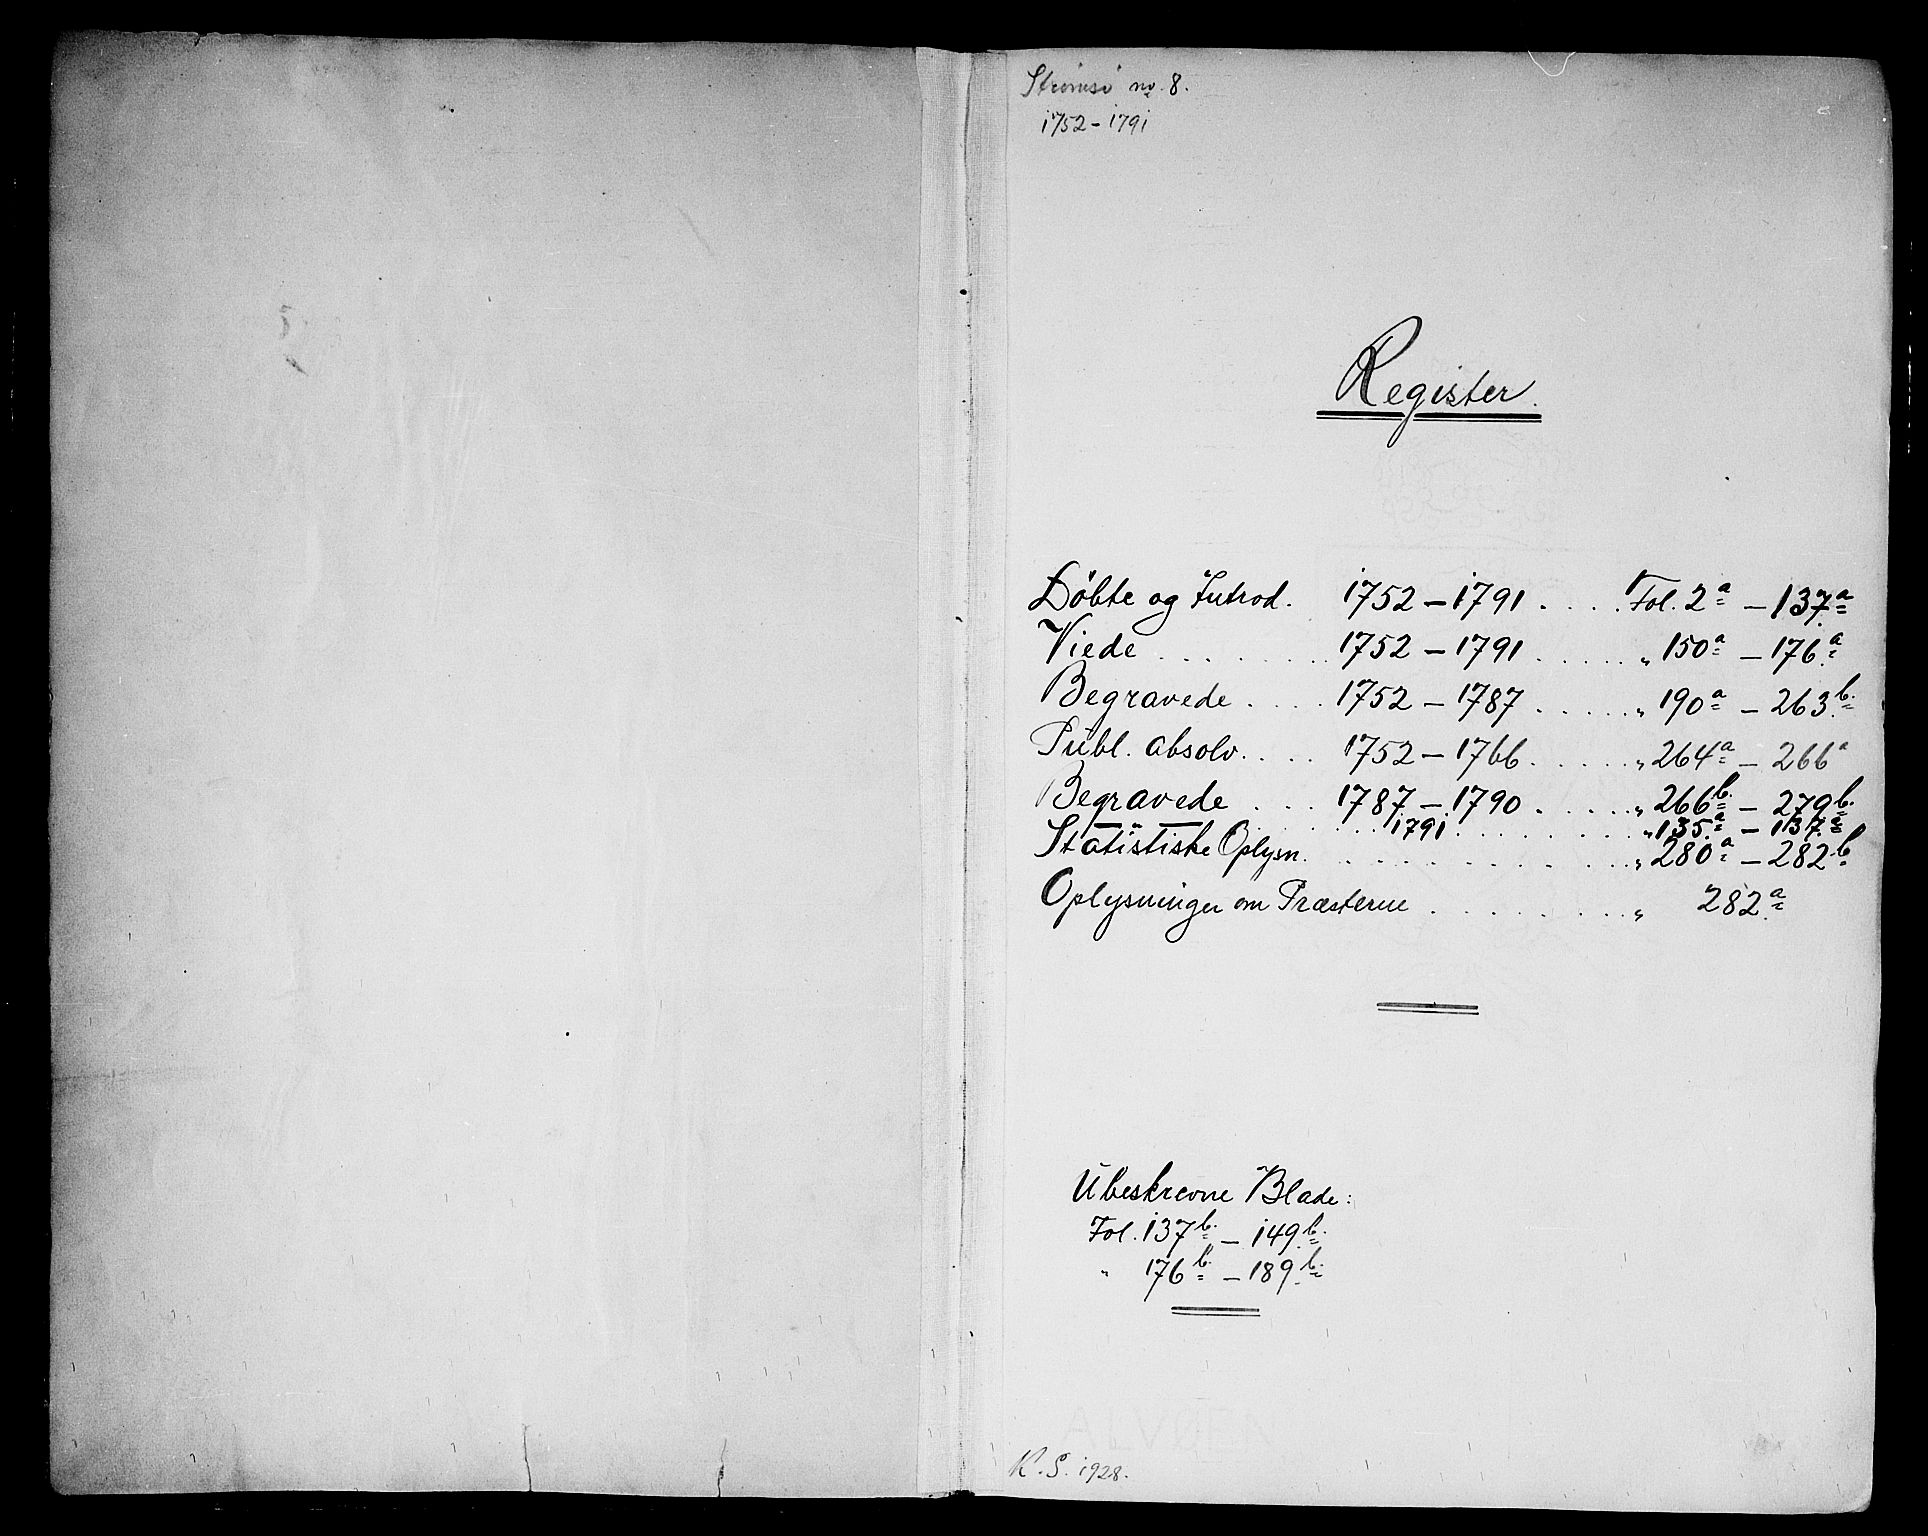 Strømsø nr. 8.
1752-1791
Register.
Döbte og Introd. 1752-1791 . . . . Fol. 2a - 137a
Viede . . . . . . 1752-1791 . . . . . „ 150a - 176a
Begravede . . . . 1752-1787 . . . . . „ 190a - 263b.
Publ. absolv. . . . 1752-1766 . . . . . „ 264a - 266a
Begravede . . . 1787-1790 . . . . . „ 266b. - 279b.
— „ — . . . . . 1791 . . . . . . . . „ 135a - 137a
Statistiske Oplysn. . . . . . . . . . . „ 280a - 282b
Oplysninger om Præsterne . . . . . . . „ 282a
Ubeskrevne Blade:
Fol. 137b. - 149b.
„ 176b. - 189b.
ALVØEN
K. S. 1928.